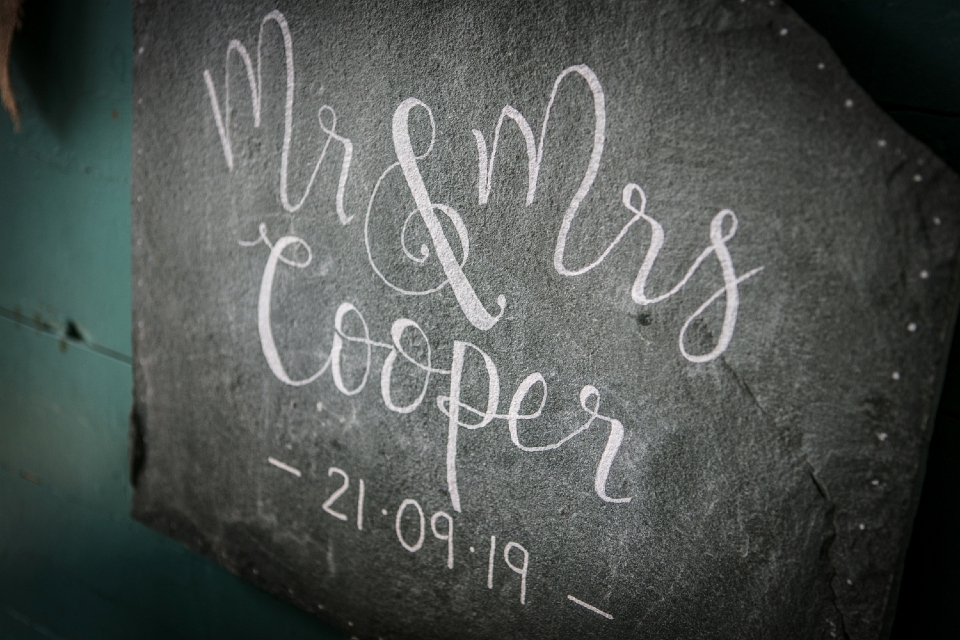 Mr & Mrs
Cooper
- 21.09.19 -